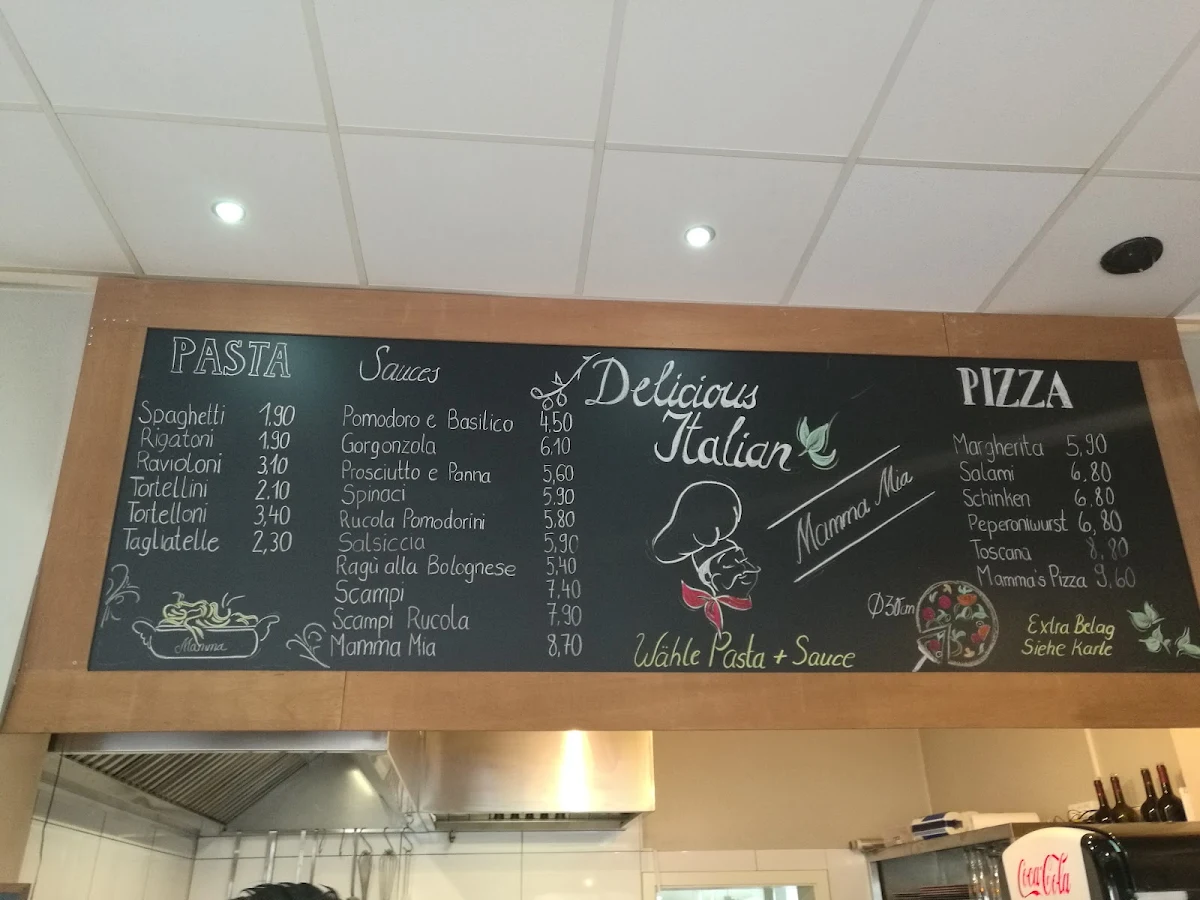 PASTA
Spaghetti 1.90
Rigatoni 1.90
Ravioloni 3.10
Tortellini 2.10
Tortelloni 3,40
Tagliatelle 2,30
Mamma
Sauces
Pomodoro e Basilico 4.50
Gorgonzola 6.10
Prosciutto e Panna 5,60
Spinaci 5.90
Rucola Pomodorini 5.80
Salsiccia 5,90
Ragù alla Bolognese 5,40
Scampi 7.40
Scampi Rucola 7,90
Mamma Mia 8,70
Delicious
Italian
Mamma Mia
Wähle Pasta + Sauce
PIZZA
Margherita 5,90
Salami 6.80
Schinken 6.80
Peperoniwurst 6,80
Toscana 8.80
Mamma's Pizza 9,60
Ø30cm
Extra Belag
Siehe Karte
Coca-Cola